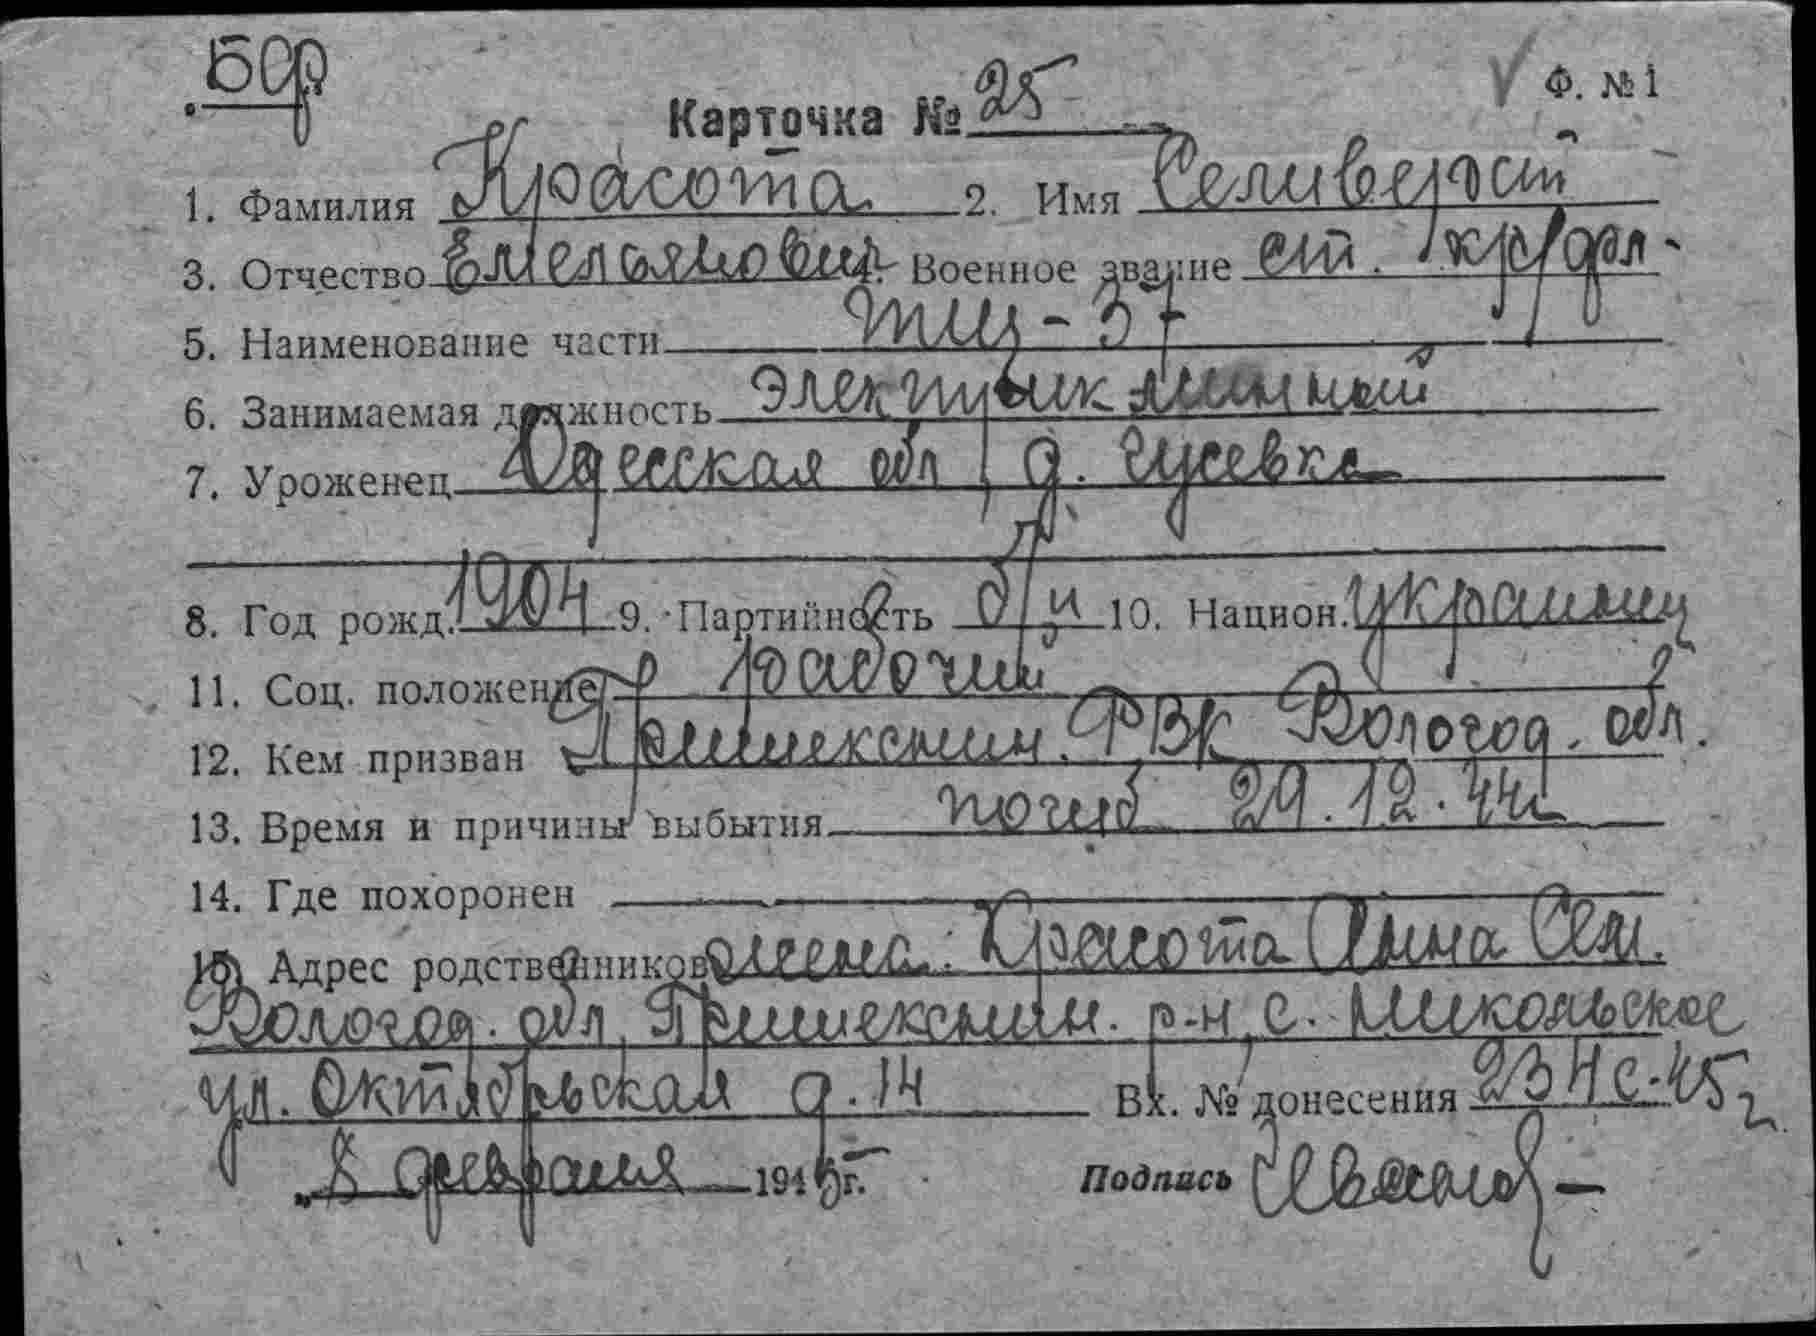 БФ
Ф. № 1
Карточка № 25
1. Фамилия Красота 2. Имя Селиверст
3. Отчество Емельянович Военное звание ст. кр/фл-
5. Наименование части ТЩ-37
6. Занимаемая должность электрик минный
7. Уроженец Одесская обл, д. Гусевка
8. Год рожд. 1904 9. Партийность б/п 10. Национ. украинец
11. Соц. положение рабочий
12. Кем призван Пришекснин. РВК Вологод. обл.
13. Время и причины выбытия погиб 29.12.44г
14. Где похоронен
15. Адрес родственников жена: Красота Анна Сем.
Вологод. обл, Пришекснин. р-н, с. Никольское
ул. Октябрьская д. 14 Вх. № донесения 234с-45г.
"8 февраля 1945г. Подпись